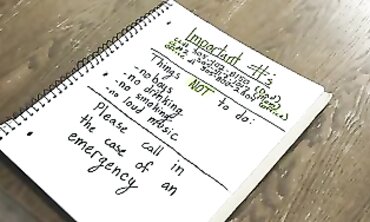 Important #'s
Things NOT to do:
-no boys
-no drinking
-no smoking
-no loud music
Please call in
the case of an
emergency